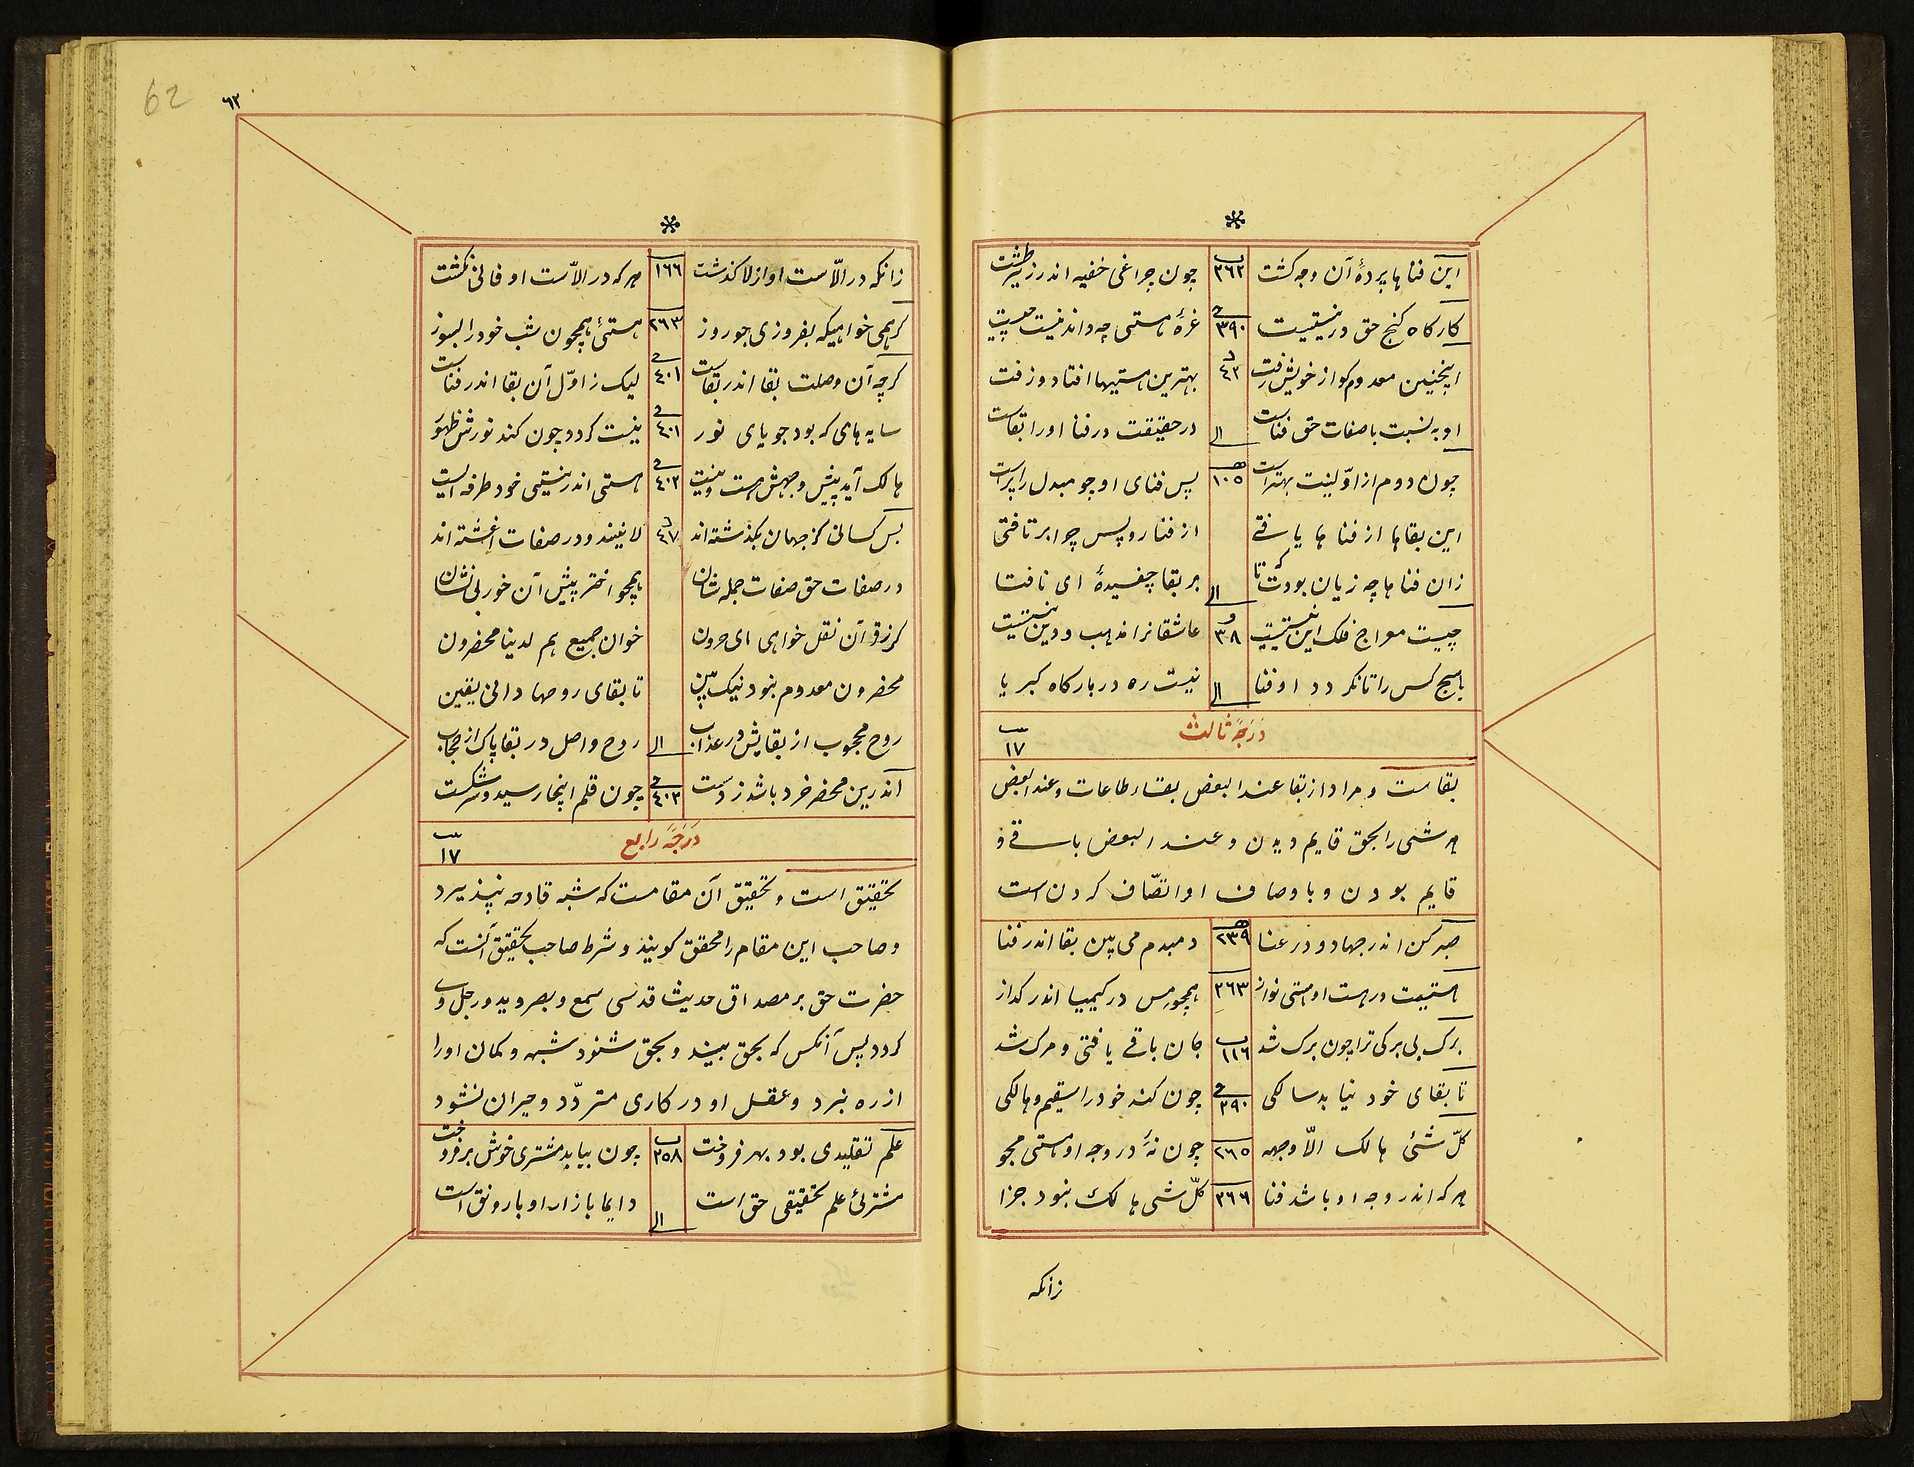 این فناها پردهٔ آن وجه کشت ۳۶۲ چون چراغی خفیه اندر زیر طشت
کارکاه کنج حق در نیستیست ۳۹۰ غرهٔ هستی چه داند نیست چیست
اینچنین معدوم کو از خویش رفت ۴۲ بهترین هستیها افتاد و زفت
او به نسبت با صفات حق فناست الی در حقیقت در فنا او را بقاست
چون دوم از اوّلینت بهتر است ۱۰۵ پس فنای او چو مبدل را پرست
این بقاها از فناها یافتی از فنا رو پس چرا برتافتی
زان فناها چه زیان بودت که تا الی بر بقا چفسیدهٔ ای نافتا
چیست معراج فلک این نیستی ۳۸ عاشقانرا مذهب و دین نیستی
هیچ کس را تا نکردد او فنا الی نیست ره در بارکاه کبریا
دَرَجَهٔ ثالث ۱۷
بقاست و مراد از بقا عند البعض بقاء طاعات و عند البعض
هر شئی را بحق قایم دیدن و عند البعض باقی و
قایم بودن و با وصاف او اتصّاف کردن است
صبر کن اندر جهاد و در عنا ۲۳۹ دمبدم می بین بقا اندر فنا
هستیت در هست او هستی نواز ۲۶۳ همچو مس در کیمیا اندر کداز
برک بی برکی ترا چون برک شد ۱۱۶ جان باقی یافتی و مرک شد
تا بقای خود نیابد سالکی ۳۹۰ چون کند خود را سقیم و هالکی
کلّ شئی هالک الّا وجهه ۲۶۵ چون نهٔ در وجه او هستی مجو
هر که اندر وجه او باشد فنا ۲۶۶ کلّ شی هالک نبود جزا
زانکه
62
۶۲
زانکه در الّاست او از لا کذشت ۱۶۶ هر که در الّاست او فانی نکشت
کر همی خواهیکه بفروزی چو روز ۲۶۳ هستئ همچون شب خود را بسوز
کرچه آن وصلت بقا اندر بقاست ۴۰۱ لیک ز اوّل آن بقا اندر فناست
سایه های که بود جویای نور ۴۰۱ نیست کردد چون کند نورش ظهور
هالک آید پیش وجهش هست و نیست ۴۰۲ هستی اندر نیستی خود طرفه ایست
بس کسانی کز جهان بکذشته اند ۴۷ لا نیند و در صفات اغشته اند
در صفات حق صفات جمله شان همچو اختر پیش آن خور بی نشان
کر ز قرآن نقل خواهی ای حرون خوان جمیع هم لدینا محضرون
محضرون معدوم نبود نیک بین تا بقای روحها دانی یقین
روح محجوب از بقا پس در عذاب الی روح واصل در بقا پاک از حجاب
اندرین محضر خرد باشد ز دست ۴۰۳ چون قلم اینجا رسید و سر شکست
دَرَجَهٔ رابع ۱۷
تحقیق است و تحقیق آن مقامست که شبه قادحه نپذیرد
و صاحب این مقام را محقق کویند و شرط صاحب تحقیق آنست که
حضرت حق بر مصداق حدیث قدسی سمع و بصر و ید و رجل وی
کردد پس آنکس که بحق بیند و بحق شنود شبه و کمان او را
از ره نبرد و عقل او در کاری متردّد و حیران نشود
علم تقلیدی بود بهر فروخت ۲۵۸ چون بیابد مشتری خوش بر فروخت
مشتریٔ علم تحقیقی حق است الی دایما بازار او با رونق است